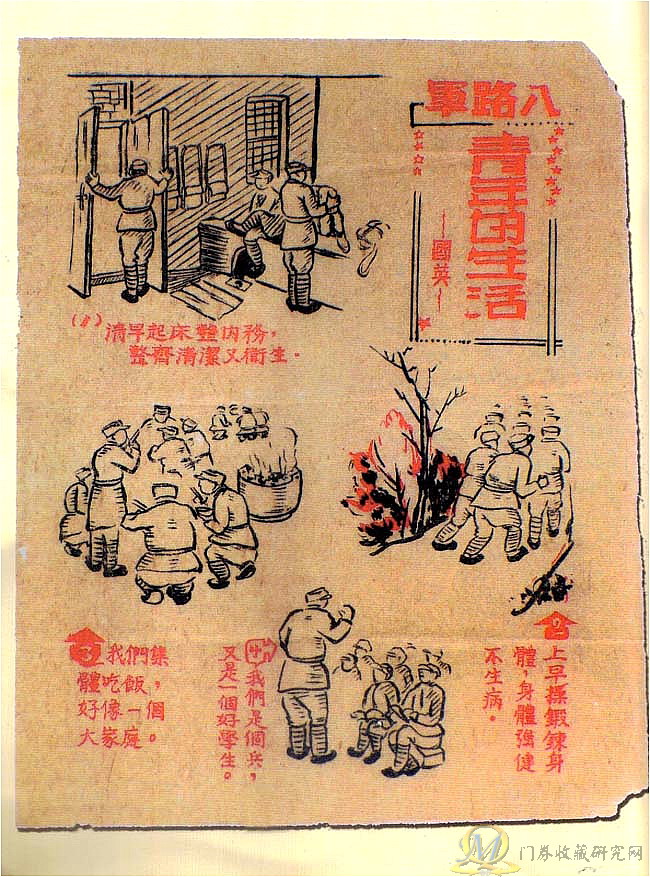 八路軍
青年的生活
～國英～
(1) 清早起床整内務，
整齊清潔又衛生．
2 上早操鍛鍊身
體，身體強健
不生病。
3 我們集
體吃飯，
好像一個
大家庭。
我們是個兵，
又是一個好學生。
门券收藏研究网